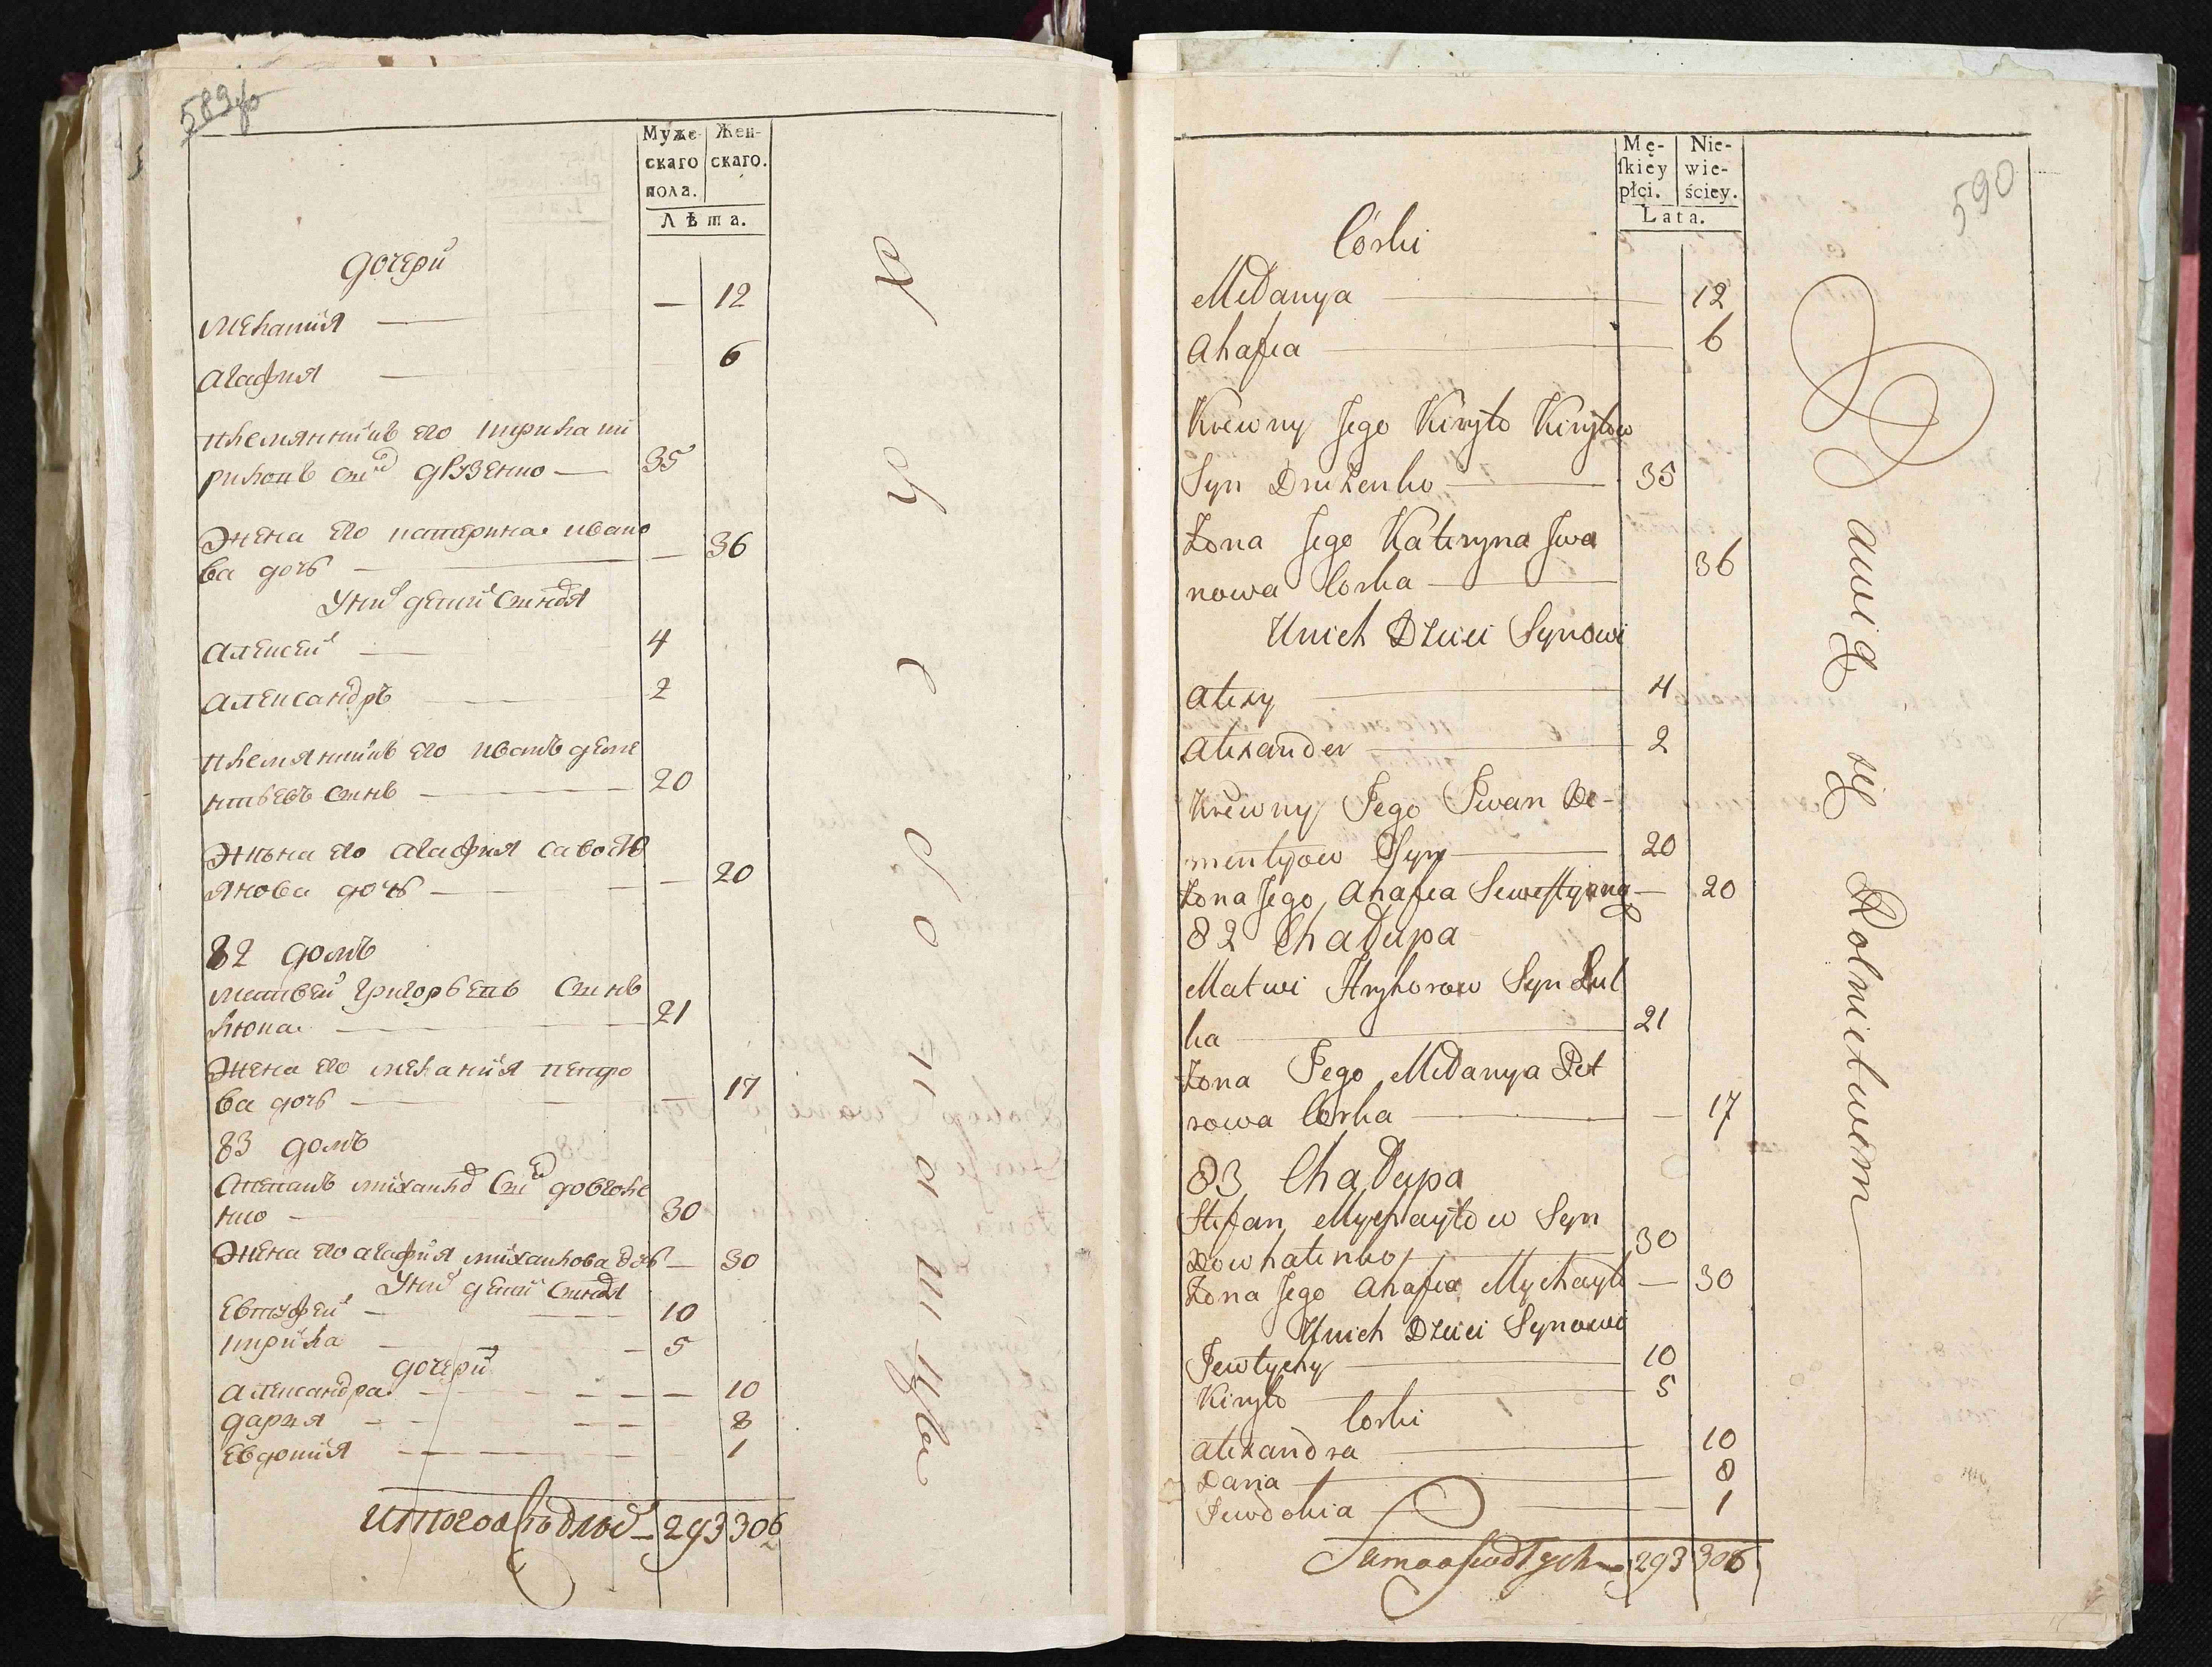 589об
Муже-
скаго
пола.
Жен-
скаго.
Лѣта.
дочери
Мелания — — 12
Агафия — 6
Племянникъ его Кирила Ки
риловъ сынъ Друзенко — 35
Жена его Катерина Ивано
ва дочь — — 36
У них детей сыновя
Алексей — 4
Александръ — 2
Племянникъ его Иванъ Деме
нтьевъ сынъ — 20
Жена его Агафия Савость
янова дочь — — 20
82 домъ
Матвей Григорьевъ сынъ
21
Жена его Мелания Петро
ва дочь — — 17
83 домъ
Степанъ Михайлов сын Довгале
нко — 30
Жена его Агафия Михайлова дочь — 30
У них детей сыновя
Евтуфей — 10
Кирила — 5
дочери
Александра — — 10
Дария — — 8
Евдокия — — 1
Итого оседлых — 293 306
590
Mę-
ſkiéy
płci.
Nie-
wie-
ściey.
Lata.
Córki
Mełanya — 12
Ahafia — 6
Krewny Jego Kiryło Kiryłow
Syn Druzenko — 35
Żona Jego Kateryna Jwa
nowa Corka — 36
Unich Dzieci Synowi
Alexy — 4
Alexander — 2
Krewny Jego Iwan De-
mentyow Syn — 20
Żona Jego Ahafia — 20
82 Chałupa
Matwi Hryhorow Syn
ka — 21
Żona Jego Mełanya Pet
rowa Corka — — 17
83 Chałupa
Stefan Mychayłow Syn
Dowhalenko — 30
Żona Jego Ahafia Mychayło — 30
Unich Dzieci Synowi
Jewtychy — 10
Kiryło — 5
Corki
Alexandra — 10
Daria — 8
Jewdokia — 1
Suma osiadłych — 293 306
Bawią się Rolnictwem